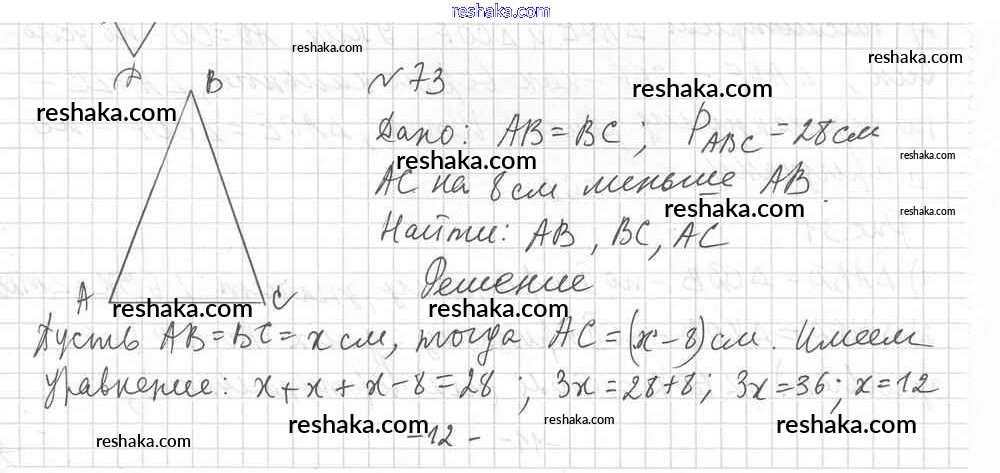 reshaka.com
reshaka.com
reshaka.com
B
№ 73
reshaka.com
reshaka.com
Дано: AB = BC ; P_ABC = 28 см
reshaka.com
reshaka.com
AC на 8 см меньше AB
reshaka.com
reshaka.com
Найти: AB, BC, AC
Решение
A
C
reshaka.com
reshaka.com
reshaka.com
Пусть AB = BC = x см, тогда AC = (x - 8) см. Имеем
уравнение: x + x + x - 8 = 28 ; 3x = 28 + 8 ; 3x = 36 ; x = 12
reshaka.com
reshaka.com
reshaka.com
reshaka.com
- 12 -